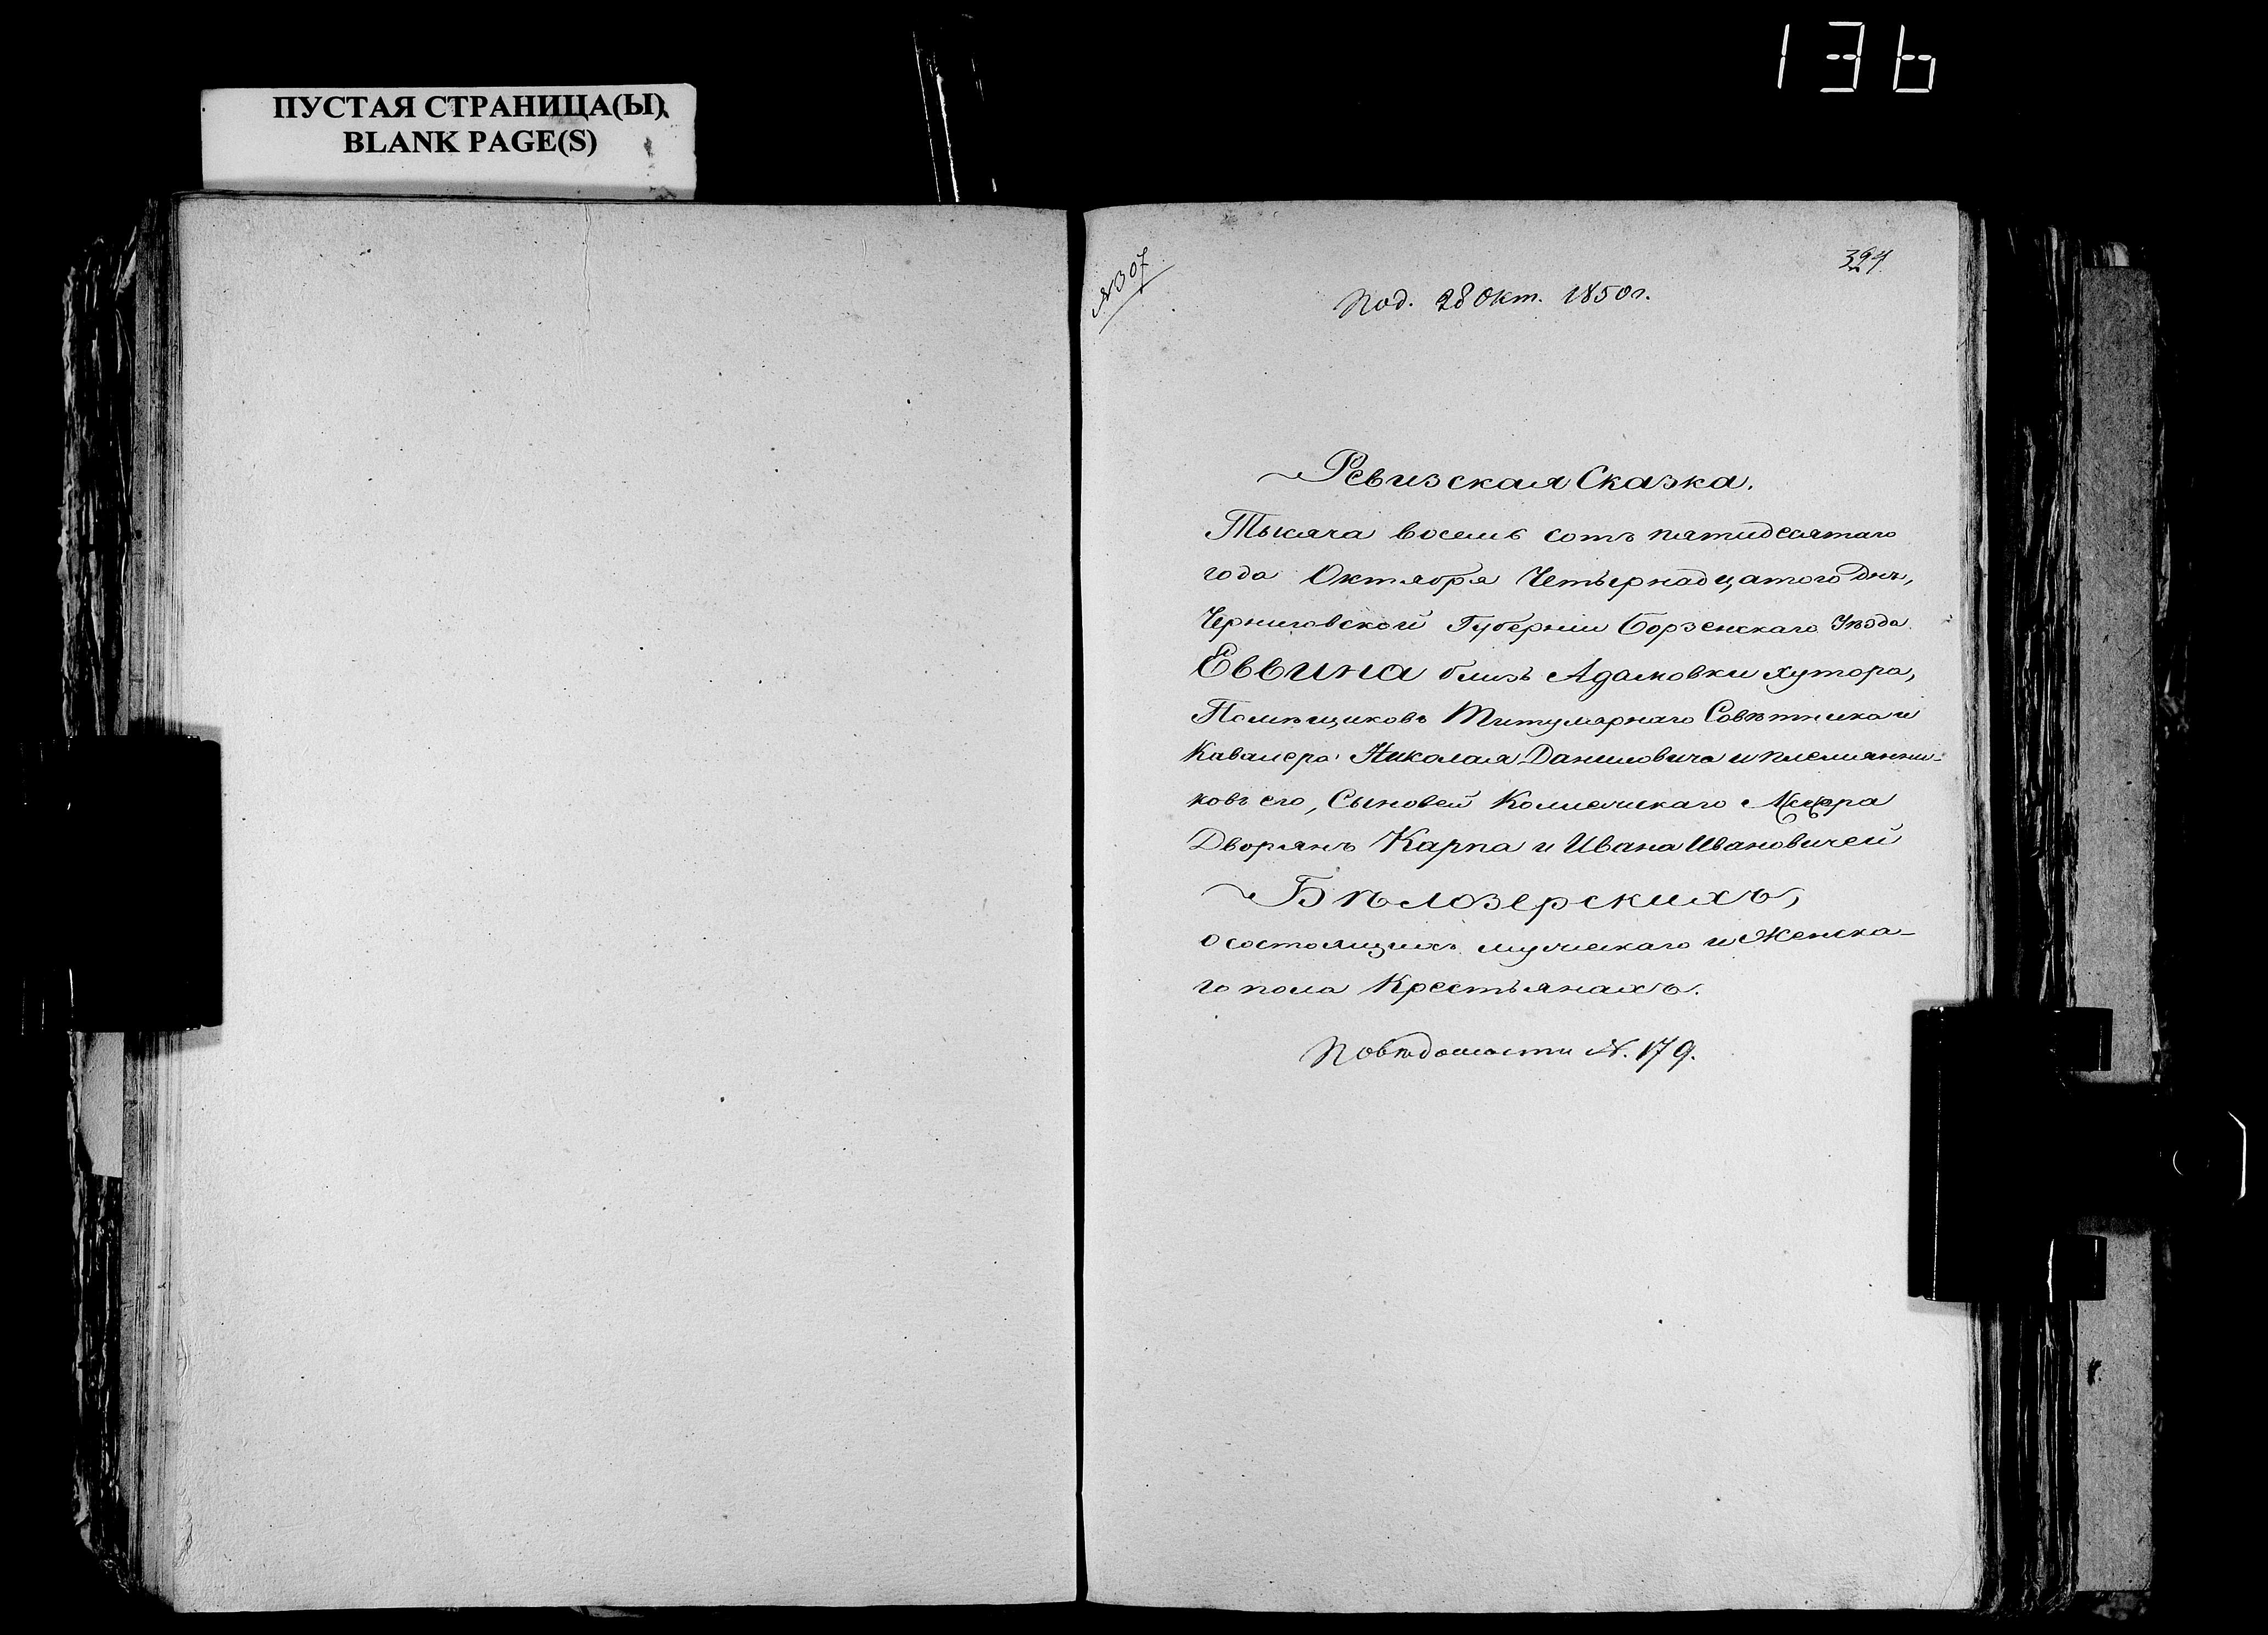 136
ПУСТАЯ СТРАНИЦА(Ы)
BLANK PAGE(S)
№307
Под. 28 Окт. 1850 г.
Ревизская Сказка.
Тысяча восемь сотъ пятидесятаго
года Октября Четырнадцатого дня,
Черниговской Губерніи Борзенскаго Уѣзда
Еввина близь Адамовки хутора,
Помѣщиковъ Титулярнаго Совѣтника и
Кавалера Николая Даниловича и племянни-
ковъ его, Сыновей Колежскаго
Дворянъ Карпа и Ивана Ивановичей
Бѣлозерскихъ,
о состоящихъ мужескаго и Женска-
го пола Крестьянахъ.
По вѣдомости №. 179.